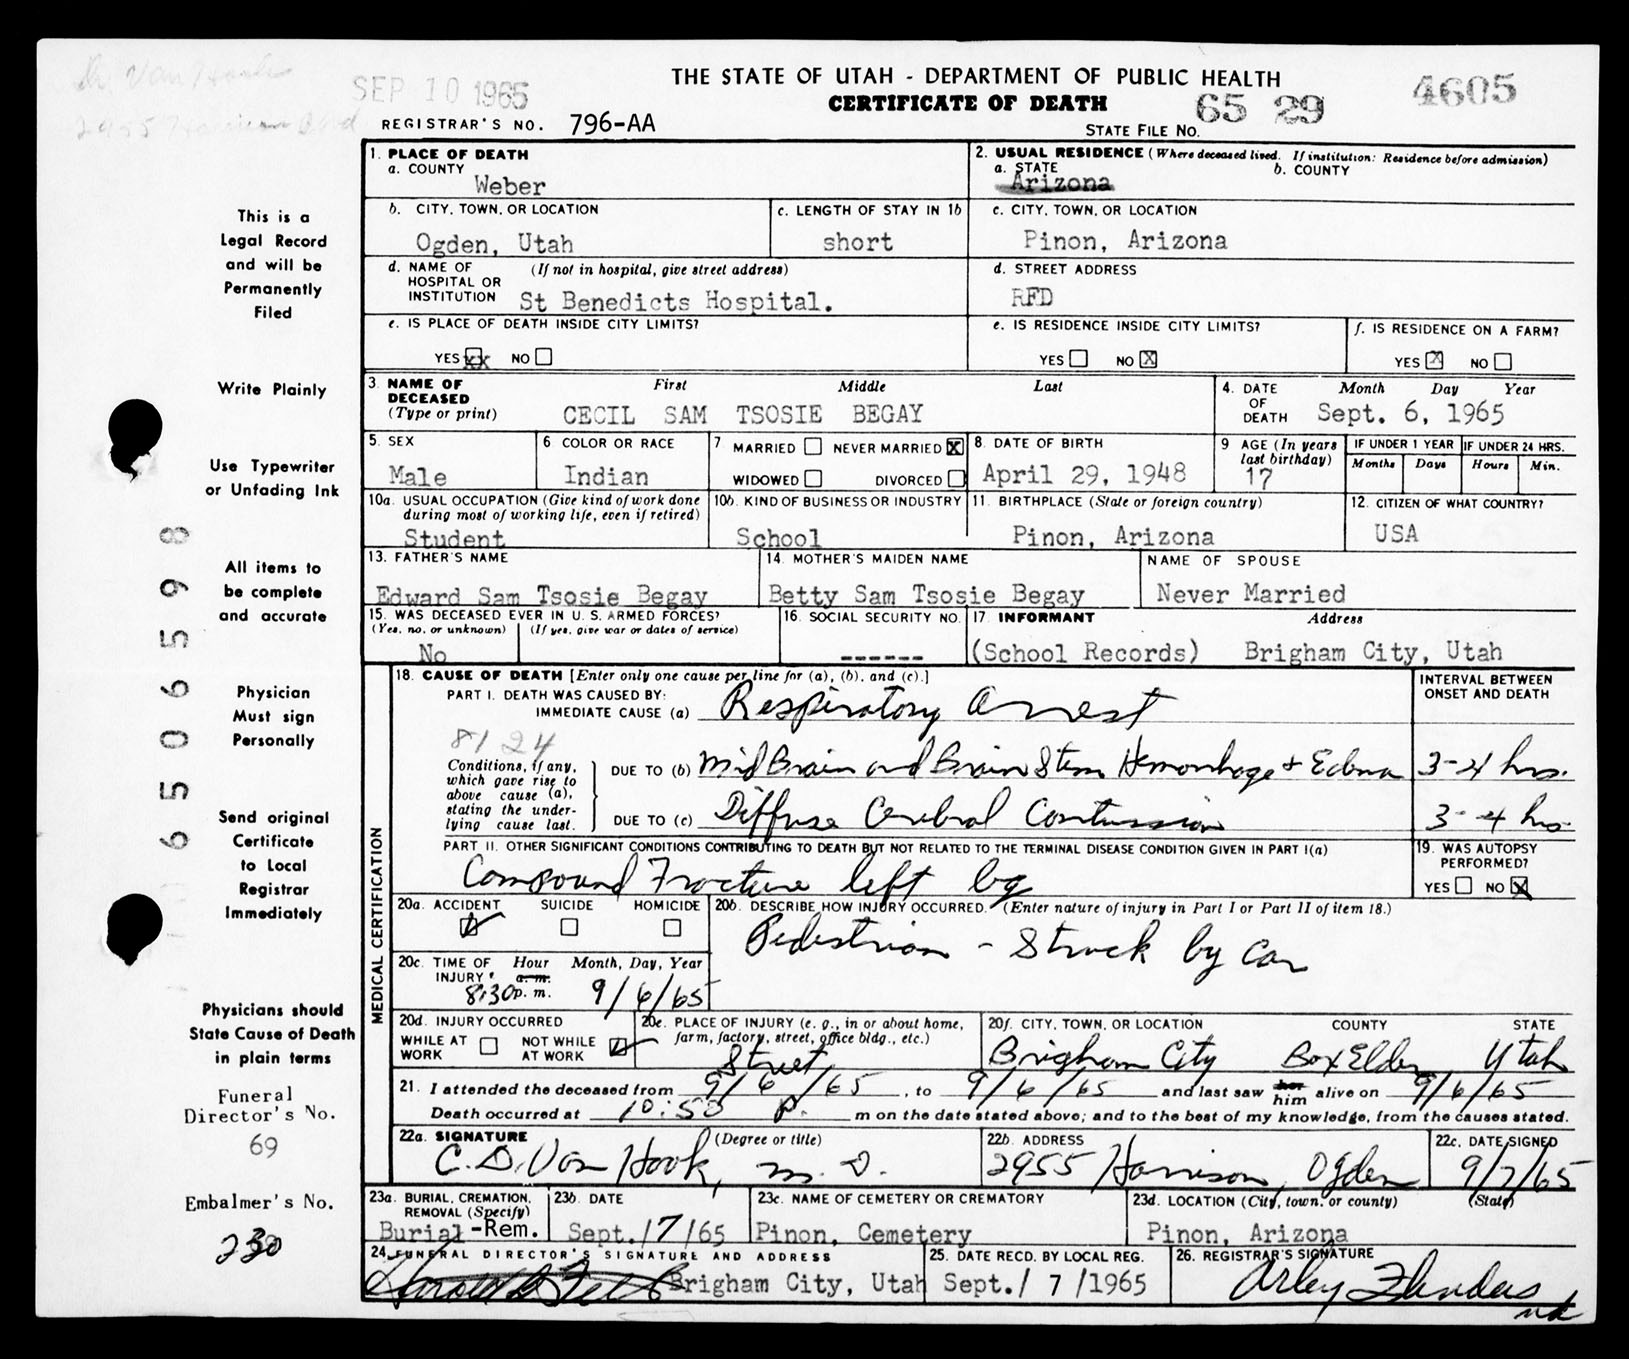 Dr. Van Hook
2955 Harrison Blvd
SEP 10 1965
THE STATE OF UTAH - DEPARTMENT OF PUBLIC HEALTH
CERTIFICATE OF DEATH
65 29
4605
REGISTRAR'S NO. 796-AA
STATE FILE NO.
This is a
Legal Record
and will be
Permanently
Filed
Write Plainly
Use Typewriter
or Unfading Ink
All items to
be complete
and accurate
Physician
Must sign
Personally
Send original
Certificate
to Local
Registrar
Immediately
Physicians should
State Cause of Death
in plain terms
Funeral
Director's No.
69
Embalmer's No.
230
65065598
1. PLACE OF DEATH
a. COUNTY
Weber
2. USUAL RESIDENCE (Where deceased lived. If institution: Residence before admission)
a. STATE b. COUNTY
Arizona
b. CITY, TOWN, OR LOCATION
Ogden, Utah
c. LENGTH OF STAY IN 1b
short
c. CITY, TOWN, OR LOCATION
Pinon, Arizona
d. NAME OF (If not in hospital, give street address)
HOSPITAL OR
INSTITUTION St Benedicts Hospital.
d. STREET ADDRESS
RFD
e. IS PLACE OF DEATH INSIDE CITY LIMITS?
YES xx NO
e. IS RESIDENCE INSIDE CITY LIMITS?
YES NO X
f. IS RESIDENCE ON A FARM?
YES X NO
3. NAME OF First Middle Last
DECEASED
(Type or print) CECIL SAM TSOSIE BEGAY
4. DATE Month Day Year
OF
DEATH Sept. 6, 1965
5. SEX
Male
6 COLOR OR RACE
Indian
7 MARRIED NEVER MARRIED X
WIDOWED DIVORCED
8. DATE OF BIRTH
April 29, 1948
9 AGE (In years
last birthday)
17
IF UNDER 1 YEAR IF UNDER 24 HRS.
Months Days Hours Min.
10a. USUAL OCCUPATION (Give kind of work done
during most of working life, even if retired)
Student
10b. KIND OF BUSINESS OR INDUSTRY
School
11. BIRTHPLACE (State or foreign country)
Pinon, Arizona
12. CITIZEN OF WHAT COUNTRY?
USA
13. FATHER'S NAME
Edward Sam Tsosie Begay
14. MOTHER'S MAIDEN NAME
Betty Sam Tsosie Begay
NAME OF SPOUSE
Never Married
15. WAS DECEASED EVER IN U. S. ARMED FORCES?
(Yes, no, or unknown) (If yes, give war or dates of service)
No
16. SOCIAL SECURITY NO.
------
17. INFORMANT Address
(School Records) Brigham City, Utah
MEDICAL CERTIFICATION
18. CAUSE OF DEATH [Enter only one cause per line for (a), (b), and (c).]
PART I. DEATH WAS CAUSED BY:
IMMEDIATE CAUSE (a) Respiratory Arrest
INTERVAL BETWEEN
ONSET AND DEATH
8124
Conditions, if any,
which gave rise to
above cause (a),
stating the under-
lying cause last.
DUE TO (b) Mid Brain and Brain Stem Hemorrhage + Edema 3-4 hrs.
DUE TO (c) Diffuse Cerebral Contussion 3-4 hrs
PART II. OTHER SIGNIFICANT CONDITIONS CONTRIBUTING TO DEATH BUT NOT RELATED TO THE TERMINAL DISEASE CONDITION GIVEN IN PART I(a)
Compound Fracture left leg
19. WAS AUTOPSY
PERFORMED?
YES NO X
20a. ACCIDENT SUICIDE HOMICIDE
20b. DESCRIBE HOW INJURY OCCURRED. (Enter nature of injury in Part I or Part II of item 18.)
Pedestrian - Struck by car
20c. TIME OF Hour Month, Day, Year
INJURY a. m.
8:30 p. m. 9/6/65
20d. INJURY OCCURRED
WHILE AT NOT WHILE
WORK AT WORK
20e. PLACE OF INJURY (e. g., in or about home,
farm, factory, street, office bldg., etc.)
Street
20f. CITY, TOWN, OR LOCATION COUNTY STATE
Brigham City Box Elder Utah
21. I attended the deceased from 9/6/65, to 9/6/65 and last saw her him alive on 9/6/65
Death occurred at 10:50 P. m on the date stated above; and to the best of my knowledge, from the causes stated.
22a. SIGNATURE (Degree or title)
C. D. Van Hook, M. D.
22b. ADDRESS
2955 Harrison, Ogden
22c. DATE SIGNED
9/7/65
23a. BURIAL, CREMATION,
REMOVAL (Specify)
Burial-Rem.
23b. DATE
Sept./7/65
23c. NAME OF CEMETERY OR CREMATORY
Pinon, Cemetery
23d. LOCATION (City, town, or county) (State)
Pinon, Arizona
24. FUNERAL DIRECTOR'S SIGNATURE AND ADDRESS
Harold B Felt Brigham City, Utah
25. DATE RECD. BY LOCAL REG.
Sept./7/1965
26. REGISTRAR'S SIGNATURE
Arley Flinders